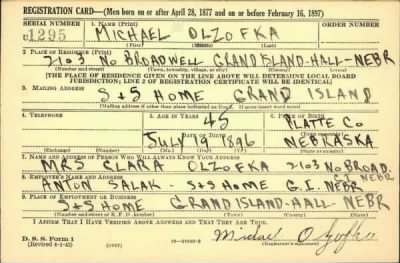 REGISTRATION CARD—(Men born on or after April 28, 1877 and on or before February 16, 1897)
SERIAL NUMBER 1. NAME (Print) ORDER NUMBER
U1295 MICHAEL OLZOFKA
(First) (Middle) (Last)
2. PLACE OF RESIDENCE (Print)
2103 NO BROADWELL GRAND ISLAND-HALL-NEBR
(Number and street) (Town, township, village, or city) (County) (State)
[THE PLACE OF RESIDENCE GIVEN ON THE LINE ABOVE WILL DETERMINE LOCAL BOARD
JURISDICTION; LINE 2 OF REGISTRATION CERTIFICATE WILL BE IDENTICAL]
3. MAILING ADDRESS
S+S HOME GRAND ISLAND
[Mailing address if other than place indicated on line 2. If same insert word same]
4. TELEPHONE 5. AGE IN YEARS 6. PLACE OF BIRTH
45 PLATTE CO
DATE OF BIRTH
JULY 19 1896 NEBRASKA
(Exchange) (Number) (Mo.) (Day) (Yr.) (State or country)
7. NAME AND ADDRESS OF PERSON WHO WILL ALWAYS KNOW YOUR ADDRESS
MRS CLARA OLZOFKA 2103 NO BROAD.
G.I. NEBR
8. EMPLOYER'S NAME AND ADDRESS
ANTON SALAK - S+S HOME G.I. NEBR
9. PLACE OF EMPLOYMENT OR BUSINESS
S+S HOME GRAND ISLAND-HALL-NEBR
(Number and street or R. F. D. number) (Town) (County) (State)
I AFFIRM THAT I HAVE VERIFIED ABOVE ANSWERS AND THAT THEY ARE TRUE.
D. S. S. Form 1
(Revised 4-1-42) (over) Michael
(Registrant's signature)